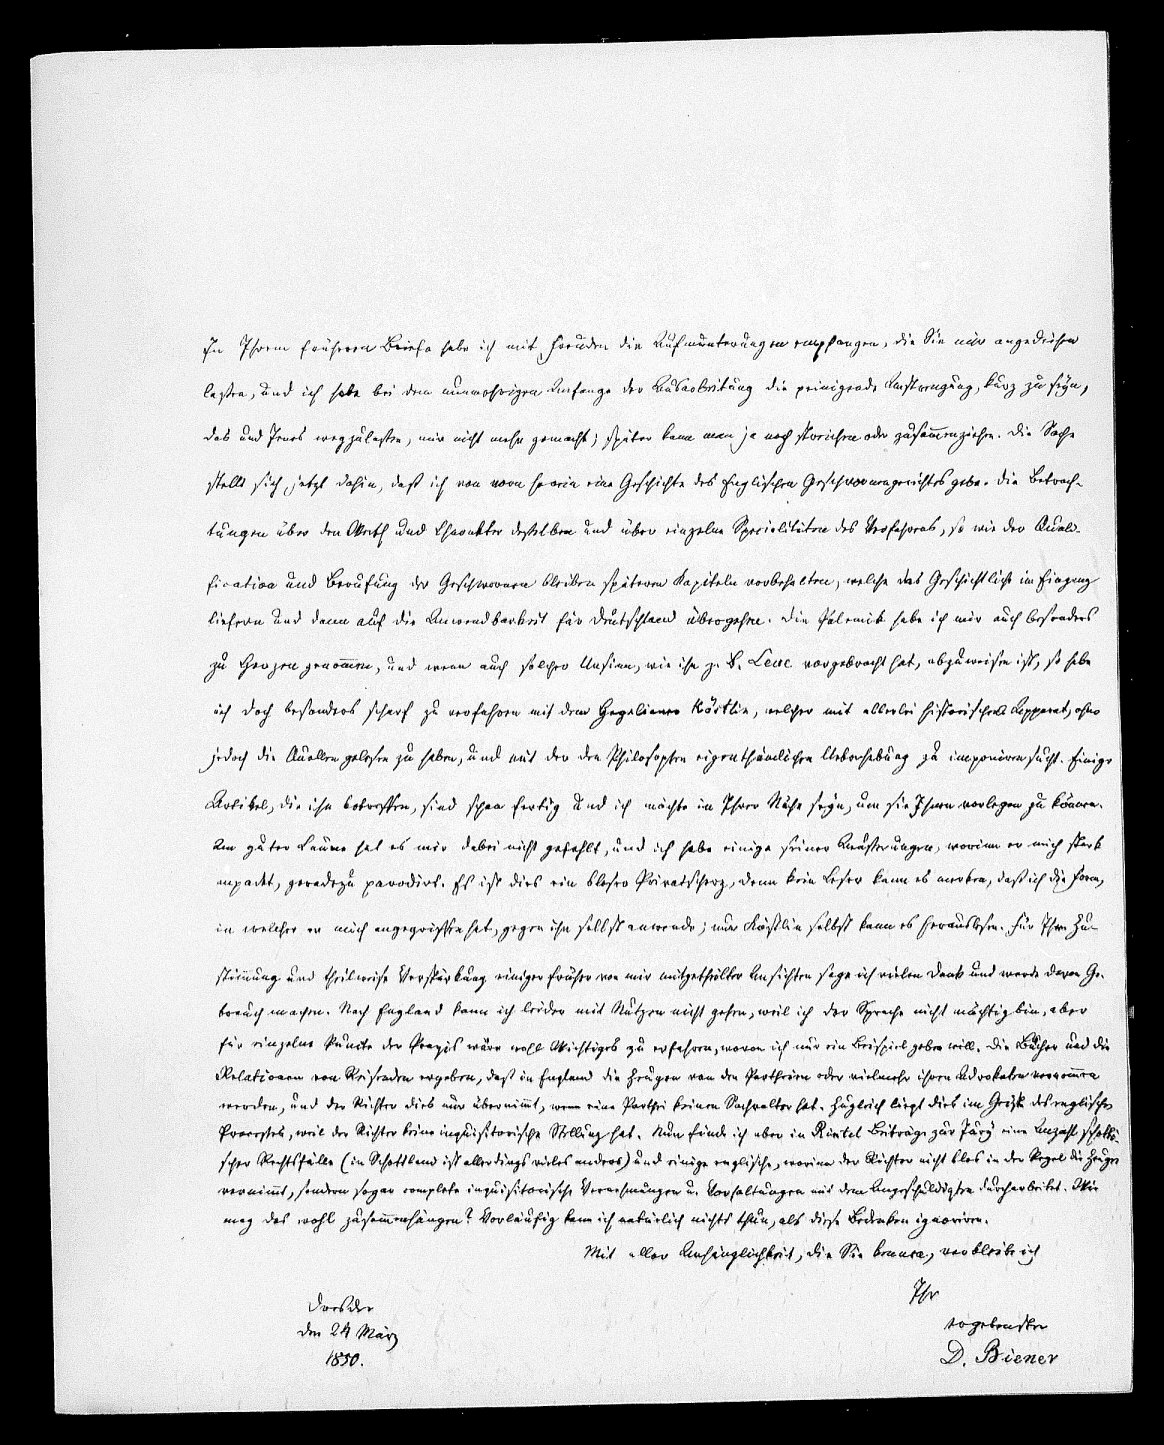 In Ihrem früheren Briefe habe ich mit Freuden die Aufmunterungen empfangen, die Sie mir angedeihen
lassen, und ich habe bei dem nunmehrigen Anfange der Ausarbeitung die peinigende Anstrengung, kurz zu seyn,
das und Jenes wegzulassen, mir nicht mehr gemacht; später kann man ja noch streichen oder zusammenziehen. Die Sache
stellt sich jetzt dahin, daß ich von vorn herein eine Geschichte des Englischen Geschwornengerichts gebe. Die Betrach-
tungen über den Werth und Charakter desselben und über einzelne Specialitäten des Verfahrens, so wie der Quali-
fication und Berufung der Geschwornen bleiben späteren Kapiteln vorbehalten, welche das Geschichtliche im Eingang
liefern und dann auf die Anwendbarkeit für Deutschland übergehen. Die Polemik habe ich mir auch besonders
zu Herzen genommen, und wenn auch solcher Unsinn, wie ihn z. B. Leue vorgebracht hat, abzuweisen ist, so habe
ich doch besonders scharf zu verfahren mit dem Hegelianer Köstlin, welcher mit allerlei historischem Apparat, ohne
jedoch die Quellen gelesen zu haben, und mit der den Philosophen eigenthümlichen Ueberhebung zu imponiren sucht. Einige
Artikel, die ihn betreffen, sind schon fertig und ich möchte in Ihrer Nähe seyn, um sie Ihnen vorlegen zu können.
An guter Laune hat es mir dabei nicht gefehlt, und ich habe einige seiner Aeusserungen, worinn er mich stark
anpackt, geradezu parodirt. Es ist dies ein bloser Privatscherz, denn kein Leser kann es merken, daß ich die Form,
in welcher er mich angegriffen hat, gegen ihn selbst anwende; nur Köstlin selbst kann es herauslesen. Für Ihre Zu-
stimmung und theilweise Verstärkung einiger früher von mir mitgetheilter Ansichten sage ich vielen Dank und werde davon Ge-
brauch machen. Nach England kann ich leider mit Nutzen nicht gehen, weil ich der Sprache nicht mächtig bin, aber
für einzelne Puncte der Praxis wäre wohl Wichtiges zu erfahren, wovon ich nur ein Beispiel geben will. Die Bücher und die
Relationen von Reisenden ergeben, daß in England die Zeugen von den Partheien oder vielmehr ihren Advokaten vernommen
werden, und der Richter dies nur übernimmt, wenn eine Parthei keinen Sachwalter hat. Zugleich liegt dies im Geist des englischen
Processes, weil der Richter keine inquisitorische Stellung hat. Nun finde ich aber in Rintel Beiträge zur Jury eine Anzahl schotti-
scher Rechtsfälle (in Schottland ist allerdings vieles anders) und einige englische, worinn der Richter nicht blos in der Regel die Zeugen
vernimmt, sondern sogar complete inquisitorische Vernehmungen u. Vorhaltungen mit dem Angeschuldigten durcharbeitet. Wie
mag das wohl zusammenhängen? Vorläufig kann ich natürlich nichts thun, als diese Bedenken ignoriren.
Mit aller Anhänglichkeit, die Sie kennen, verbleibe ich
Ihr
ergebenster
D. Biener
Dresden
den 24 März
1850.